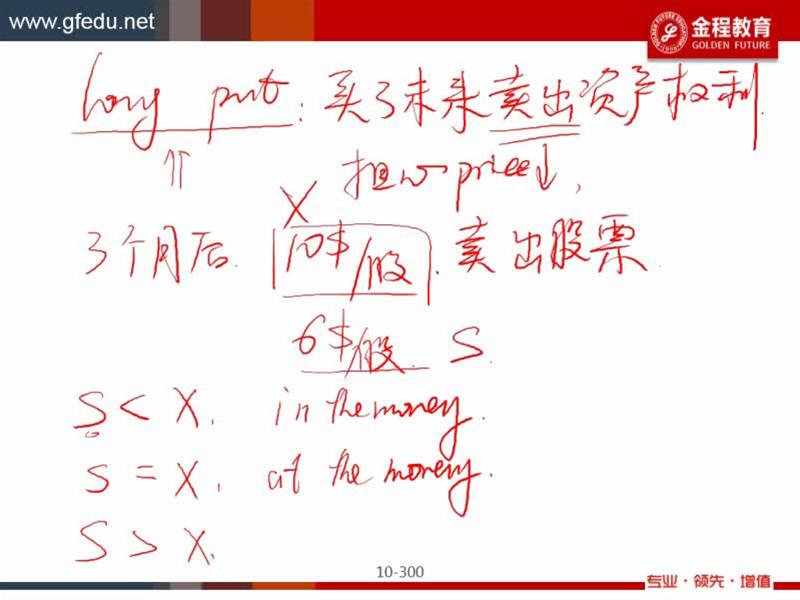 www.gfedu.net
金程教育
GOLDEN FUTURE
long put：买了未来卖出资产权利.
担心price↓,
X
3个月后. 10$/股. 卖出股票.
6$/股. S.
S < X, in the money.
S = X, at the money.
S > X,
10-300
专业·领先·增值